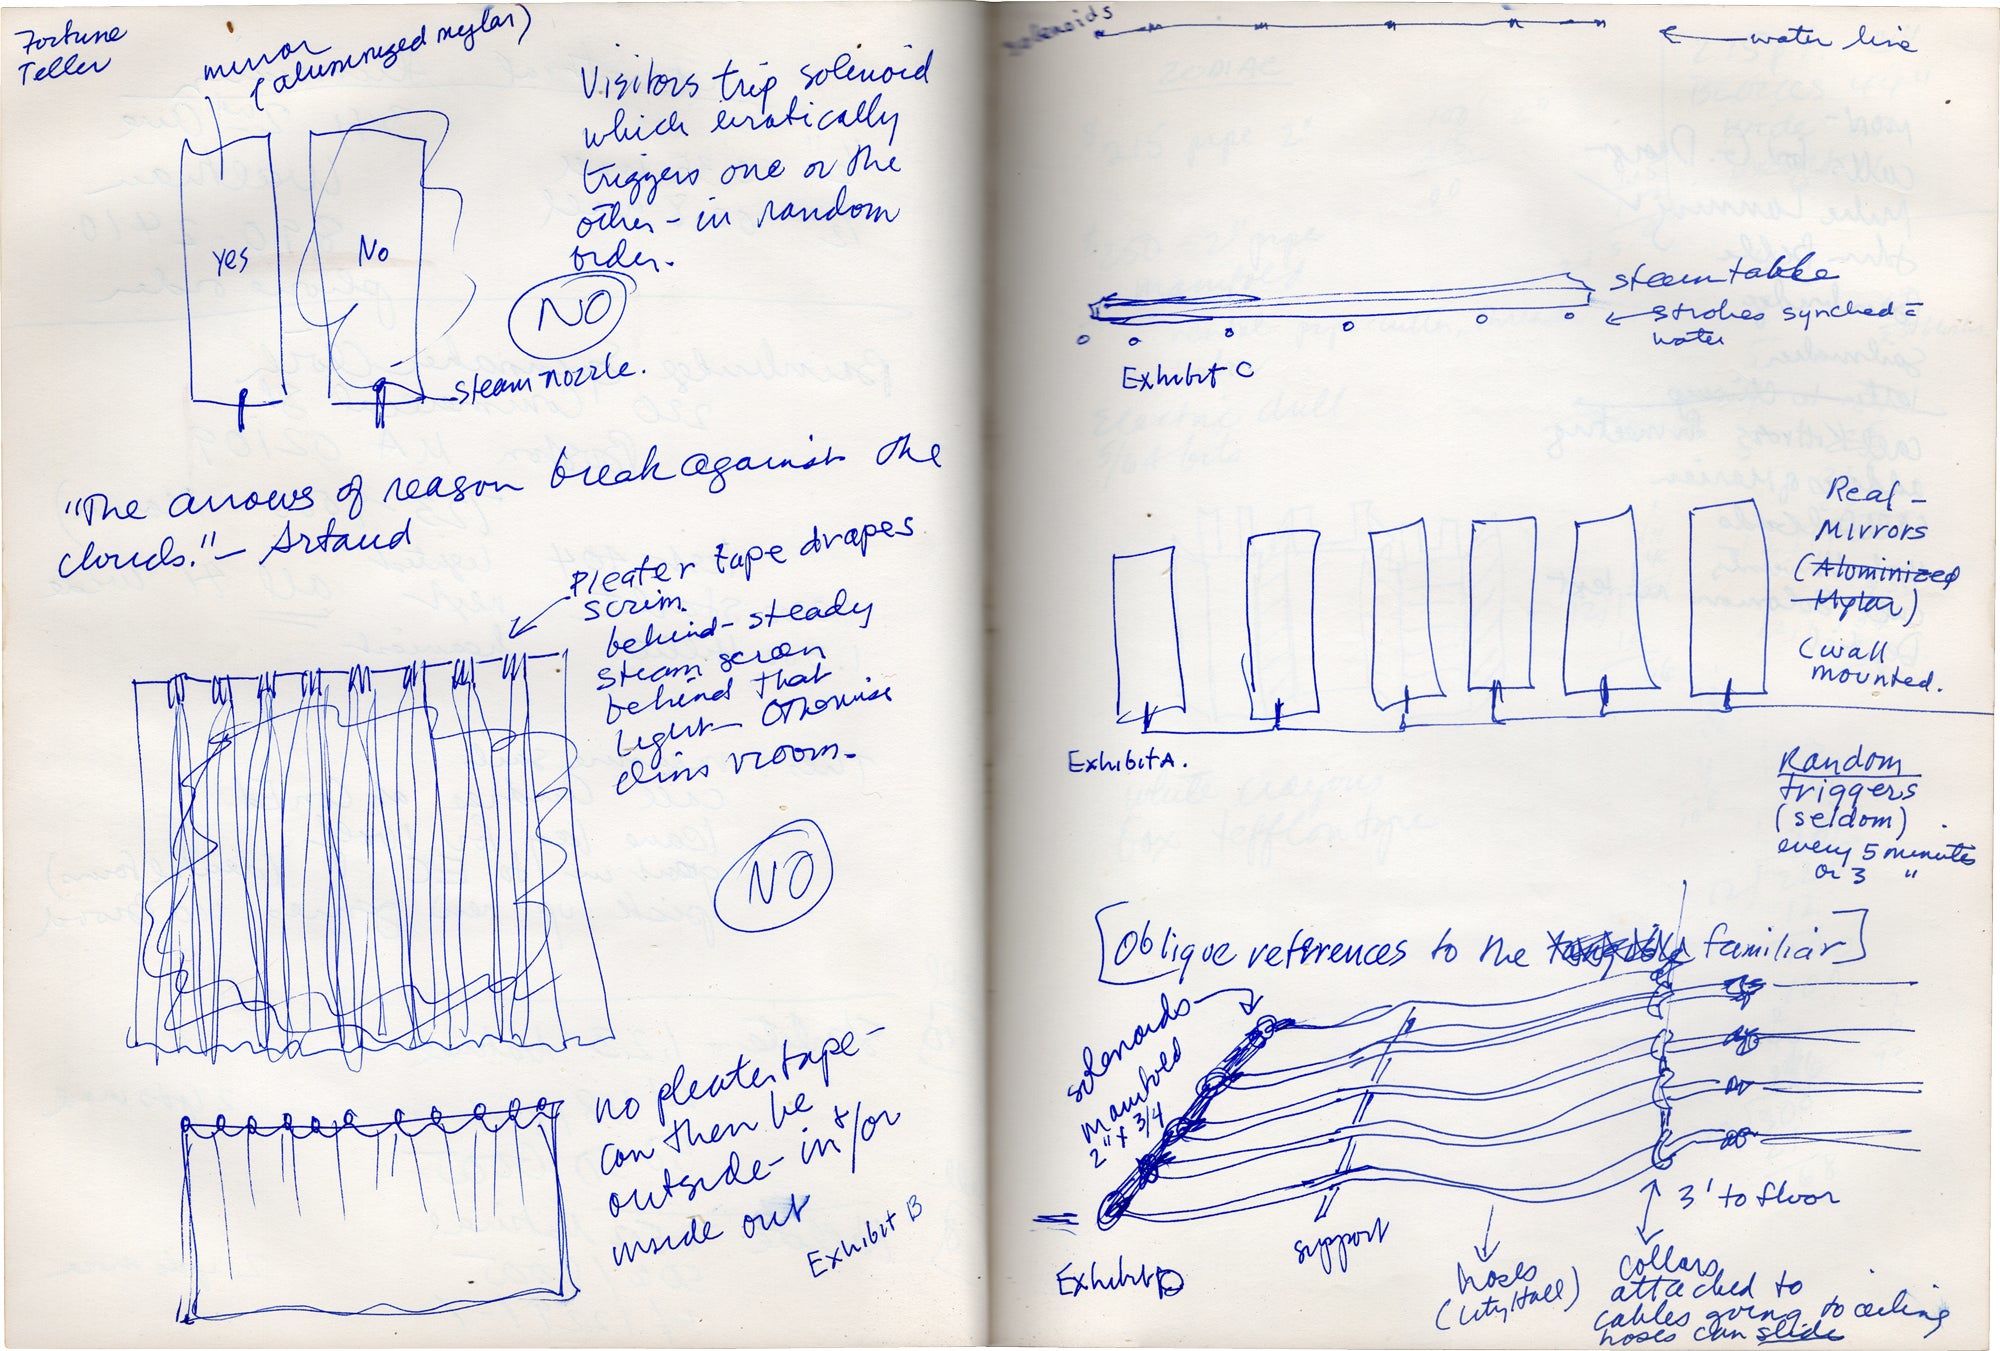 Fortune
Teller
mirror
(aluminized mylar)
Visitors trip solenoid
which erratically
triggers one or the
other - in random
order.
Yes
No
NO
steam nozzle.
"The arrows of reason break against the
clouds." - Artaud
Pleater tape drapes
scrim.
behind - steady
steam screen
behind that
light - otherwise
dims room -
NO
no pleater tape -
can then be
outside - in +/or
inside out
Exhibit B
solenoids
water line
steam table
strobes synched =
water
Exhibit C
Real -
Mirrors
(Aluminized
Mylar)
(wall
mounted.
Exhibit A.
Random
triggers
(seldom)
every 5 minutes
or 3 "
[Oblique references to the familiar]
solenoids
manifold
2" x 3/4
Exhibit D
support
hoses
(City Hall)
3' to floor
collars
attached to
cables going to ceiling
hoses can slide